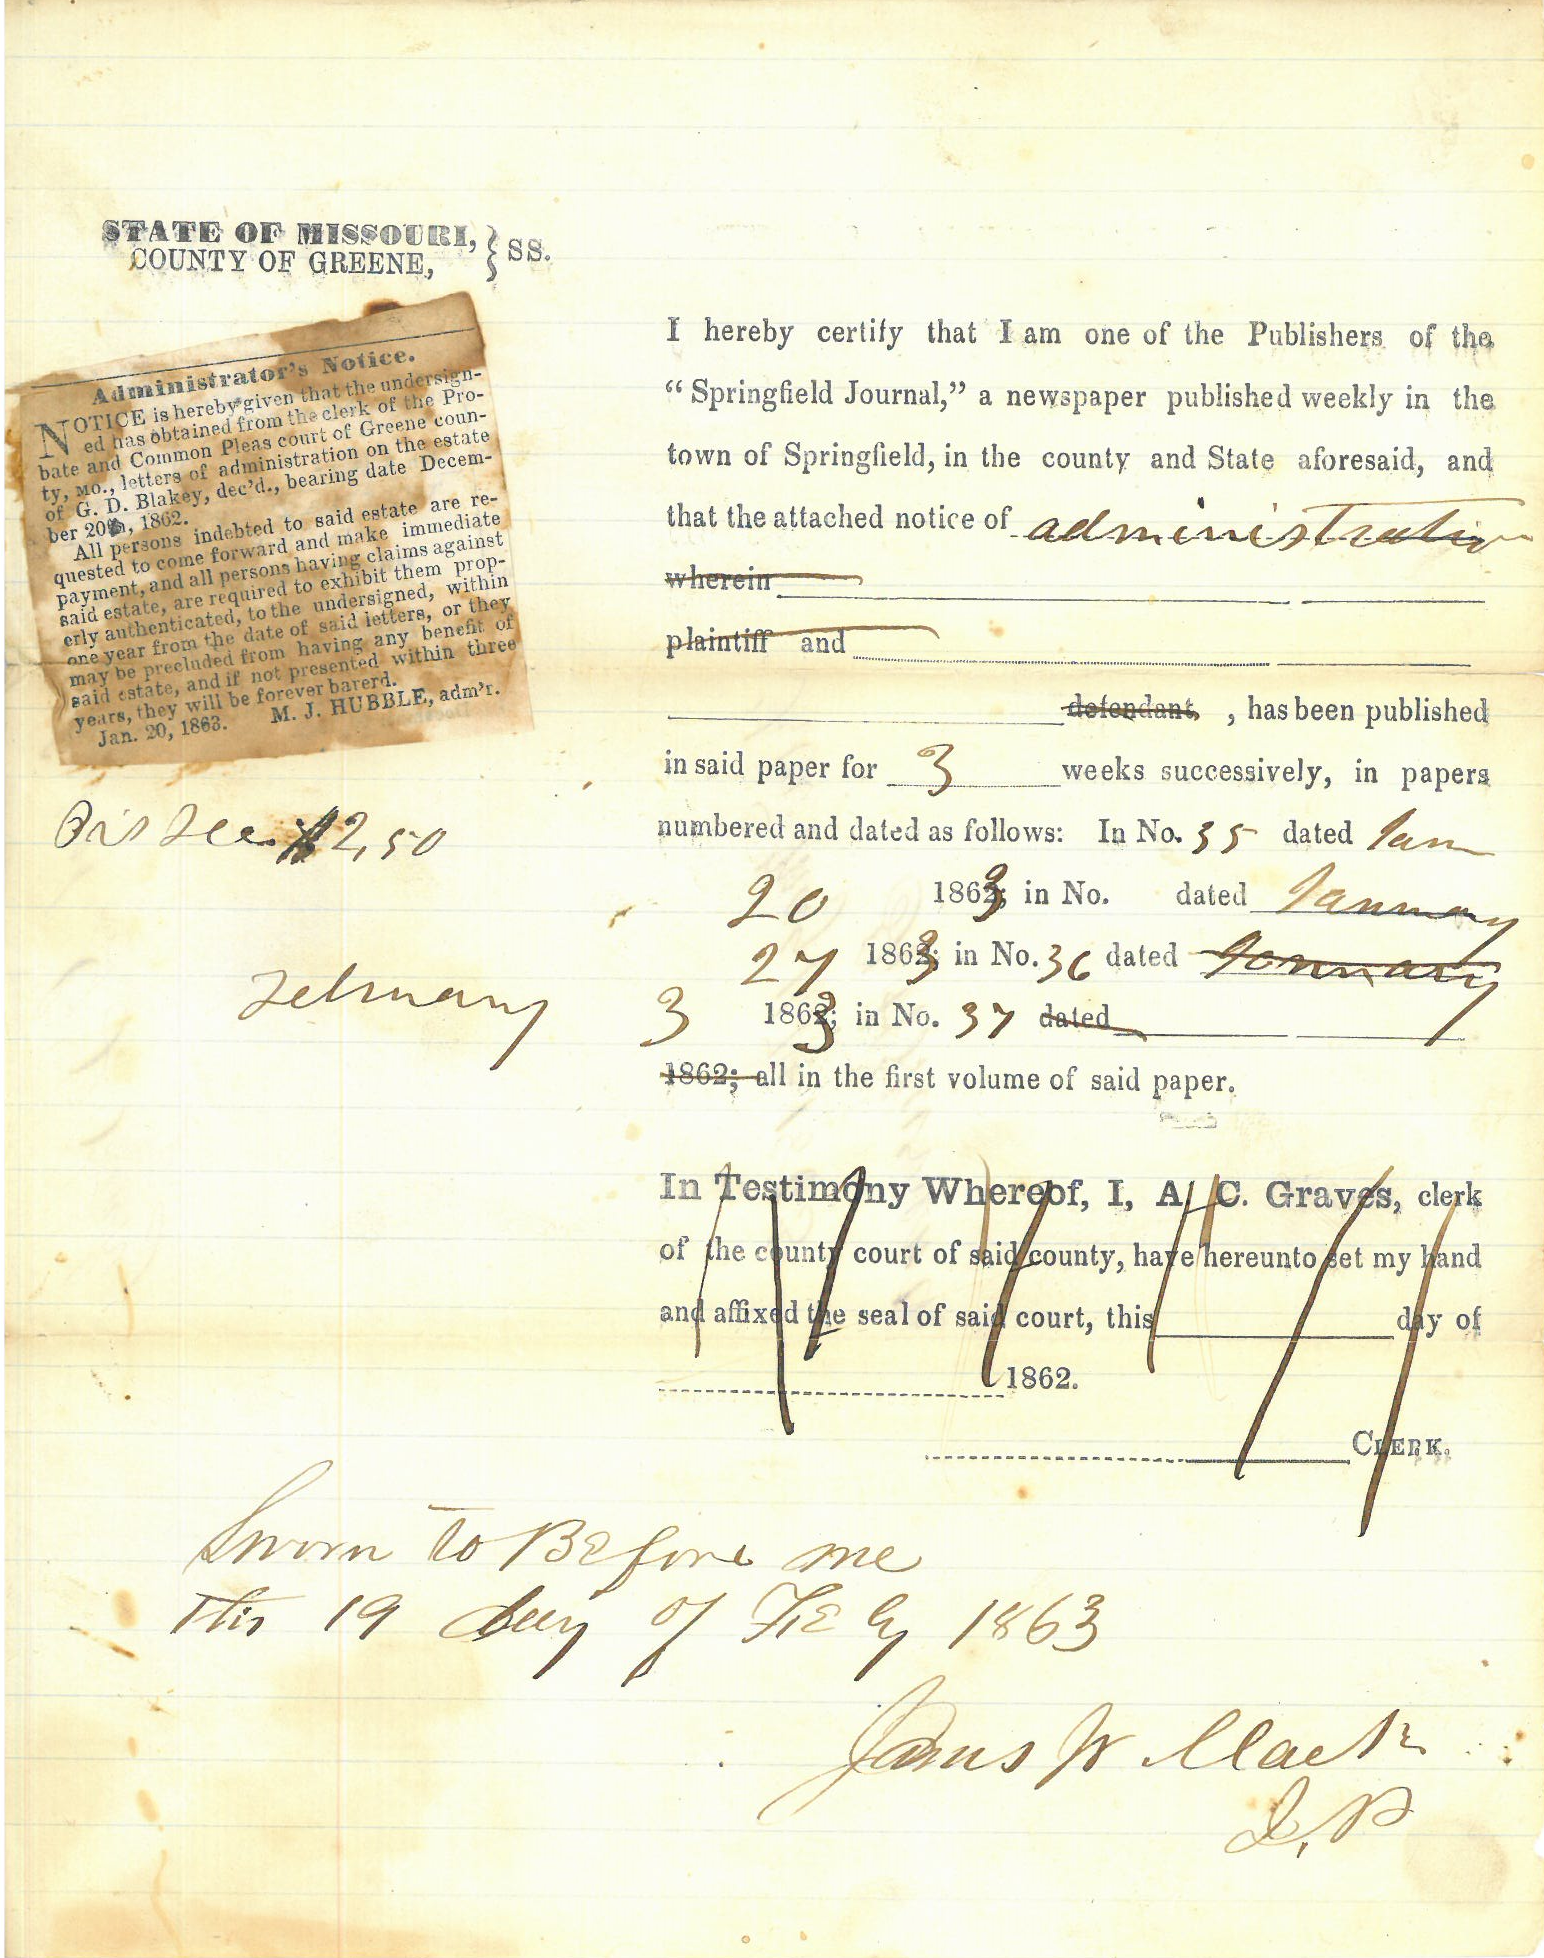 STATE OF MISSOURI, } SS.
COUNTY OF GREENE,
Administrator's Notice.
NOTICE is hereby given that the undersign-
ed has obtained from the clerk of the Pro-
bate and Common Pleas court of Greene coun-
ty, Mo., letters of administration on the estate
of G. D. Blakey, dec'd., bearing date Decem-
ber 20th, 1862.
All persons indebted to said estate are re-
quested to come forward and make immediate
payment, and all persons having claims against
said estate, are required to exhibit them prop-
erly authenticated, to the undersigned, within
one year from the date of said letters, or they
may be precluded from having any benefit of
said estate, and if not presented within three
years, they will be forever barerd.
M. J. HUBBLE, adm'r.
Jan. 20, 1863.
Fee $2,50
I hereby certify that I am one of the Publishers of the
"Springfield Journal," a newspaper published weekly in the
town of Springfield, in the county and State aforesaid, and
that the attached notice of administration
wherein
plaintiff and
defendant, , has been published
in said paper for 3 weeks successively, in papers
numbered and dated as follows: In No. 35 dated Jan
20 1863; in No. dated January
27 1863; in No. 36 dated January
February 3 1863; in No. 37 dated
1862; all in the first volume of said paper.
In Testimony Whereof, I, A. C. Graves, clerk
of the county court of said county, have hereunto set my hand
and affixed the seal of said court, this day of
1862.
CLERK.
Sworn to Before me
this 19 day of Feby 1863
James W Mack
J. P